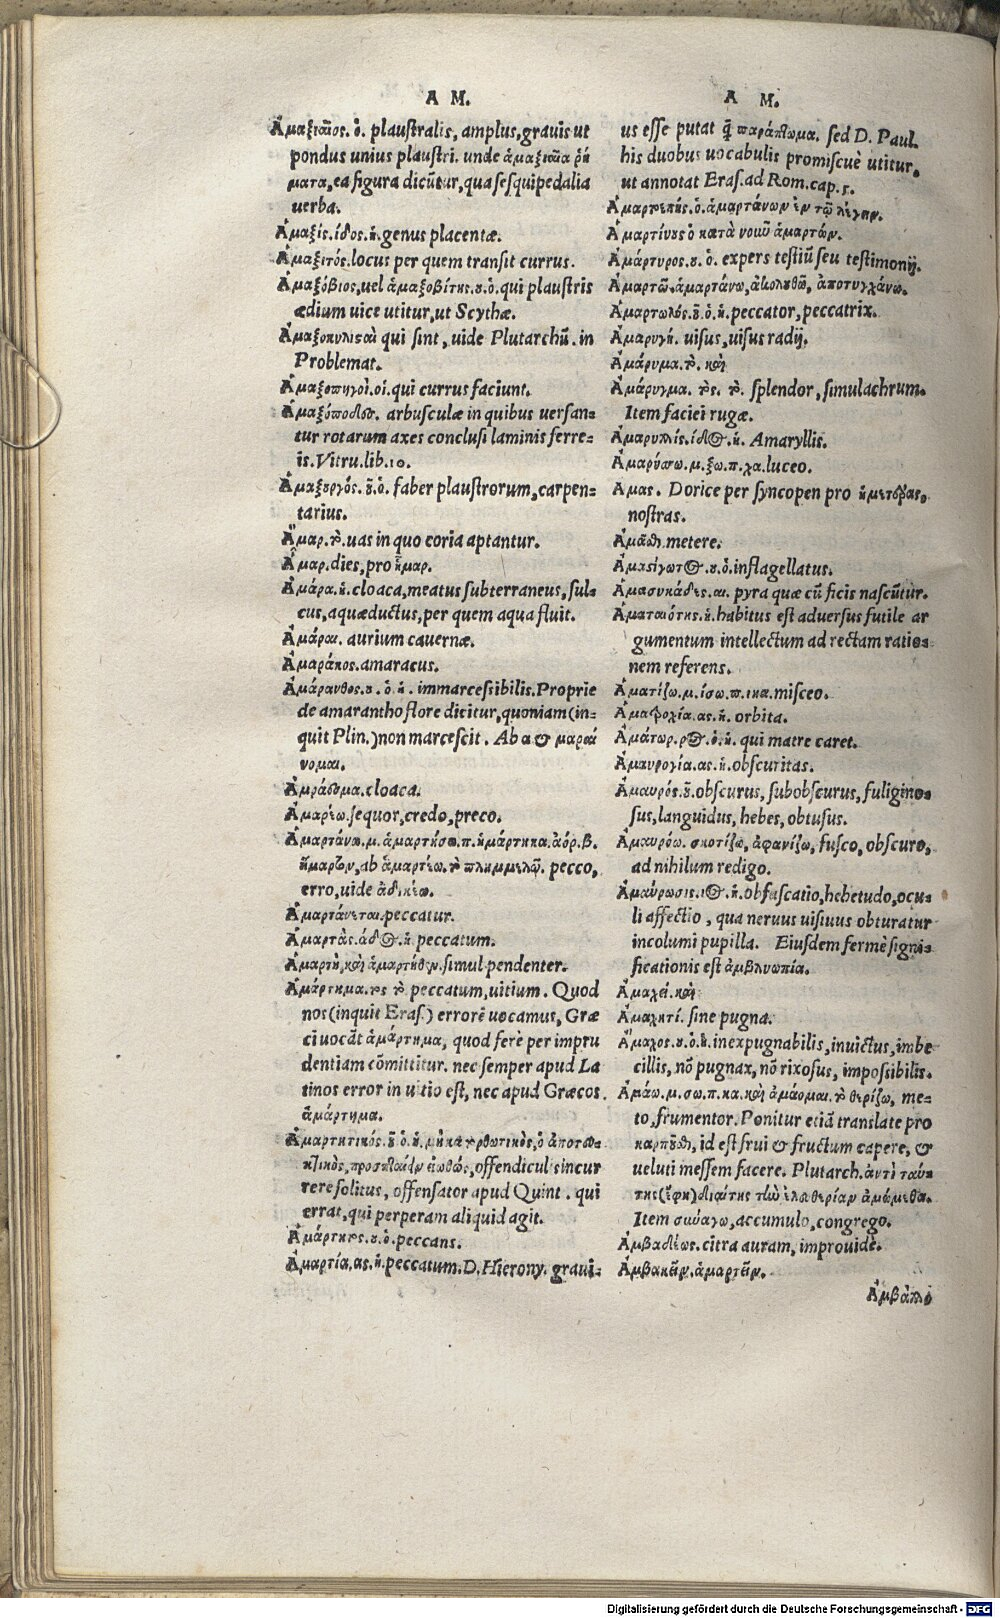 A M.
Ἁμαξιαῖος. ὁ. plaustralis, amplus, grauis ut
pondus unius plaustri. unde ἁμαξιαῖα ῥή
ματα, ea figura dicūtur, qua sesquipedalia
uerba.
Ἁμαξὶς. ίδος. ἡ. genus placentæ.
Ἁμαξιτός. locus per quem transit currus.
Ἁμαξόβιος, uel ἁμαξοβίτης. ου. ὁ. qui plaustris
ædium uice utitur, ut Scythæ.
Ἁμαξοκυλισταὶ qui sint, uide Plutarchū. in
Problemat.
Ἁμαξοπηγοὶ. οἱ. qui currus faciunt.
Ἁμαξόποδες. arbusculæ in quibus uersan=
tur rotarum axes conclusi laminis ferre=
is. Vitru. lib. 10.
Ἁμαξουργός. οῦ. ὁ. faber plaustrorum, carpen=
tarius.
Ἄμαρ. τὸ. uas in quo coria aptantur.
Ἆμαρ. dies, pro ἦμαρ.
Ἀμάρα. ἡ. cloaca, meatus subterraneus, sul=
cus, aquæductus, per quem aqua fluit.
Ἀμάραι. aurium cauernæ.
Ἀμάρακος. amaracus.
Ἀμάρανθος. ου. ὁ. ἡ. immarcessibilis. Proprie
de amarantho flore dicitur, quoniam (in=
quit Plin.) non marcescit. Ab α & μαραί
νομαι.
Ἀμράδεμα. cloaca.
Ἁμαρέω. sequor, credo, preco.
Ἁμαρτάνω. μ. ἁμαρτήσω. π. ἡμάρτηκα. ἀόρ. β.
ἥμαρτον, ab ἁμαρτέω. τὸ πλημμελῶ. pecco,
erro, uide ἀδικέω.
Ἁμαρτάνεται. peccatur.
Ἁμαρτὰς. άδος. ἡ. peccatum.
Ἁμαρτῆ, καὶ ἁμαρτήδην. simul pendenter.
Ἁμάρτημα. τος τὸ peccatum, uitium. Quod
nos (inquit Eras.) errorē uocamus, Græ
ci uocāt ἁμάρτημα, quod ferè per impru
dentiam cōmittitur. nec semper apud La
tinos error in uitio est, nec apud Græcos.
ἁμάρτημα.
Ἁμαρτητικός. οῦ ὁ. ἡ. μὴ κατορθωτικὸς, ὁ ἀποτευ=
κτικὸς, προσπταίειν εἰωθώς, offendiculis incur
rere solitus, offensator apud Quint. qui
errat, qui perperam aliquid agit.
Ἁμάρτητος. ου. ὁ. peccans.
Ἁμαρτία, ας. ἡ. peccatum. D. Hierony. graui=
A M.
us esse putat q̄ παράπτωμα. sed D. Paul.
his duobus uocabulis promiscuè utitur,
ut annotat Eras. ad Rom. cap. 5.
Ἁμαρτεπὴς. ὁ. ἁμαρτάνων ἐν τῷ λέγειν.
Ἁμαρτίνους ὁ κατὰ νοῦν ἁμαρτών.
Ἀμάρτυρος. ου. ὁ. expers testiū seu testimonij.
Ἁμαρτῶ. ἁμαρτάνω, ἀκολουθῶ, ἀποτυγχάνω.
Ἁμαρτωλός. οῦ. ὁ. ἡ. peccator, peccatrix.
Ἀμαρυγή. uisus, uisus radij.
Ἀμάρυμα. τὸ. καὶ
Ἀμάρυγμα. τος. τὸ. splendor, simulachrum.
Item faciei rugæ.
Ἀμαρυλλὶς. ίδος. ἡ. Amaryllis.
Ἀμαρύσσω. μ. ξω. π. χα. luceo.
Ἁμας. Dorice per syncopen pro ἡμετέρας,
nostras.
Ἀμᾶσθαι metere.
Ἀμαστίγωτος. ου. ὁ. inflagellatus.
Ἁμασυκάδες. αι. pyra quæ cū ficis nascūtur.
Ἀματαιότης. ἡ. habitus est aduersus futile ar
gumentum intellectum ad rectam ratio=
nem referens.
Ἁματίζω. μ. ίσω. π. ικα. misceo.
Ἁματροχία. ας. ἡ. orbita.
Ἀμάτωρ. ρος. ὁ. ἡ. qui matre caret.
Ἀμαυρογία. ας. ἡ. obscuritas.
Ἀμαυρός. οῦ. obscurus, subobscurus, fuligino=
sus, languidus, hebes, obtusus.
Ἀμαυρόω. σκοτίζω, ἀφανίζω, fusco, obscuro,
ad nihilum redigo.
Ἀμαύρωσις. ιος. ἡ. obfuscatio, hebetudo, ocu=
li affectio, qua neruus uisiuus obturatur
incolumi pupilla. Eiusdem fermè signi=
ficationis est ἀμβλυωπία.
Ἀμαχεί. καὶ
Ἀμαχητί. sine pugna.
Ἄμαχος. ου. ὁ. ἡ. inexpugnabilis, inuictus, imbe
cillis, nō pugnax, nō rixosus, impossibilis.
Ἀμάω. μ. σω. π. κα. καὶ ἀμάομαι. τὸ θερίζω, me=
to, frumentor. Ponitur etiā translate pro
καρποῦσθαι, id est frui & fructum capere, &
ueluti messem facere. Plutarch. ἀντὶ ταύ=
της (ἔφη) διαίτης τὴν ἐλευθερίαν ἀμώμεθα.
Item συνάγω, accumulo, congrego.
Ἀμβαδέως. citra auram, improuidè.
Ἀμβακεῖν. ἁμαρτεῖν.